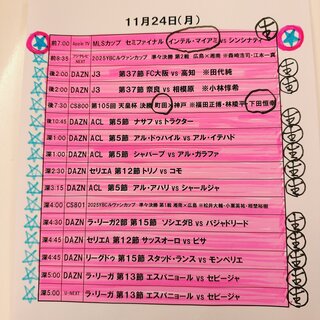 11月24日(月)
前7:00 Apple TV MLSカップ セミファイナル インテル・マイアミ vs シンシナティ
前8:35 フジテレビNEXT 2025YBCルヴァンカップ 準々決勝 第2戦 広島×湘南 ※森崎浩司・江本一真
後2:00 DAZN J3 第37節 FC大阪 vs 高知 ※田代純
後2:00 DAZN J3 第37節 奈良 vs 相模原 ※小林惇希
後7:30 CS800 第105回 天皇杯 決勝 町田×神戸 ※福田正博・林陵平・下田恒幸
後10:45 DAZN ACL 第5節 ナサフ vs トラクター
深1:00 DAZN ACL 第5節 アル・ドゥハイル vs アル・イテハド
深1:00 DAZN ACL 第5節 シャバーブ vs アル・ガラファ
深2:30 DAZN セリエA 第12節 トリノ vs コモ
深3:00 DAZN ACL 第5節 アル・アハリ vs シャールジャ
深4:00 CS801 2025YBCルヴァンカップ 準々決勝 第1戦 湘南×広島 ※松井大輔・小栗英祐・桜埜祐樹
深4:30 DAZN ラ・リーガ2部 第15節 ソシエダB vs バジャドリード
深4:45 DAZN セリエA 第12節 サッスオーロ vs ピサ
深4:45 DAZN リーグドゥ 第15節 スタッド・ランス vs モンペリエ
深5:00 DAZN ラ・リーガ 第13節 エスパニョール vs セビージャ
深5:00 U-NEXT ラ・リーガ 第13節 エスパニョール vs セビージャ